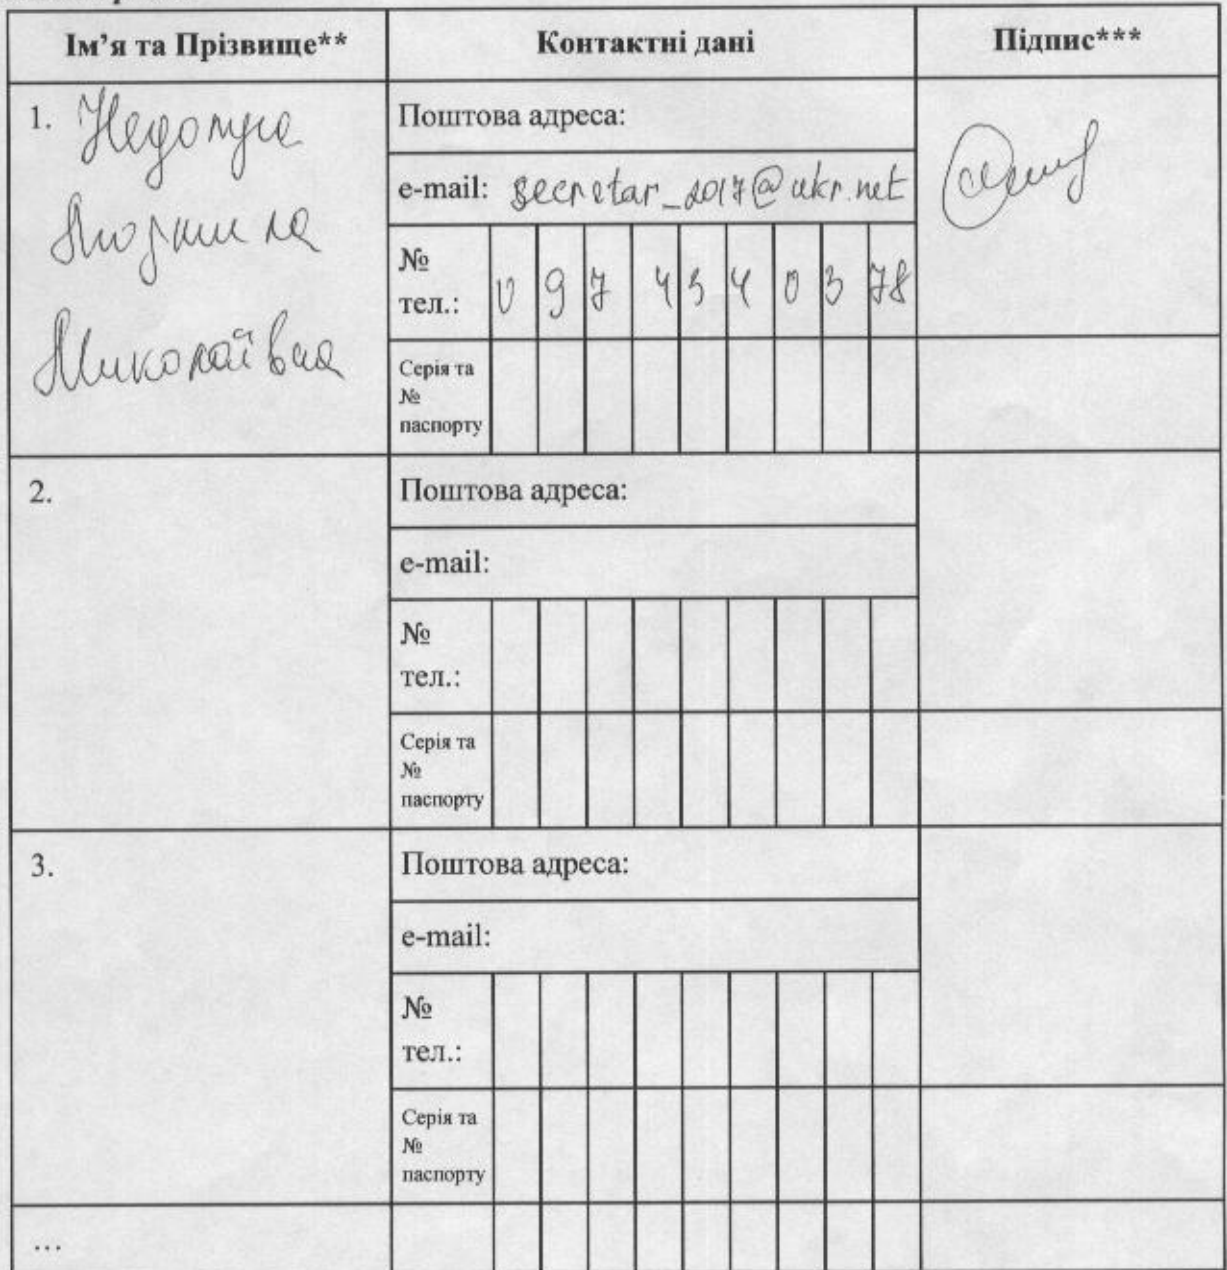 Ім’я та Прізвище**
Контактні дані
Підпис***
1. Недопуга
Людмила
Миколаївна
Поштова адреса:
e-mail: secretar_2017@ukr.net
№ тел.: 0 9 7 4 5 4 0 3 78
Серія та № паспорту
2.
Поштова адреса:
e-mail:
№ тел.:
Серія та № паспорту
3.
Поштова адреса:
e-mail:
№ тел.:
Серія та № паспорту
...